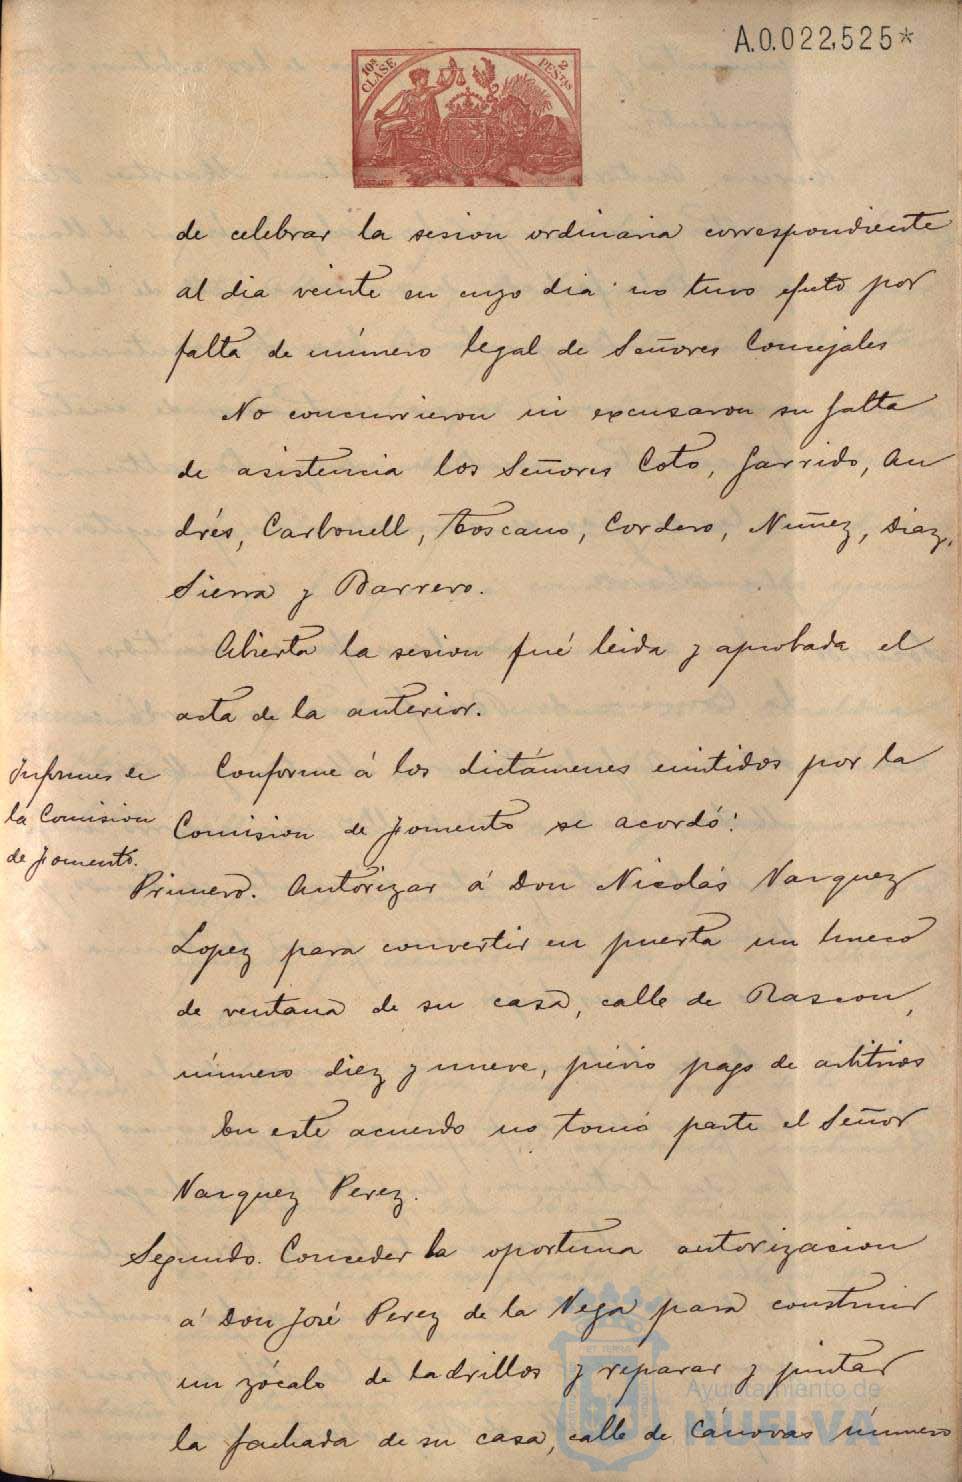 A.0.022,525*
10ª CLASE
2 PESTAS
de celebrar la sesion ordinaria correspondiente
al dia veinte en cuyo dia no tuvo efecto por
falta de número legal de Señores Concejales
No concurrieron ni excusaron su falta
de asistencia los Señores Coto, Garrido, An
drés, Carbonell, Toscano, Cordero, Nuñez, Diaz,
Sierra y Barrero.
Abierta la sesion fué leida y aprobada el
acta de la anterior.
Informes de
la Comision
de Fomento.
Conforme á los dictámenes emitidos por la
Comision de Fomento se acordó:
Primero. Autorizar á Don Nicolás Vazquez
Lopez para convertir en puerta un hueco
de ventana de su casa, calle de Rascon,
número diez y nueve, prévio pago de arbitrios
En este acuerdo no tomó parte el Señor
Vazquez Perez.
Segundo. Conceder la oportuna autorizacion
á Don José Perez de la Vega para construir
un zócalo de ladrillos y reparar y pintar
la fachada de su casa, calle de Cánovas número
Ayuntamiento de
HUELVA